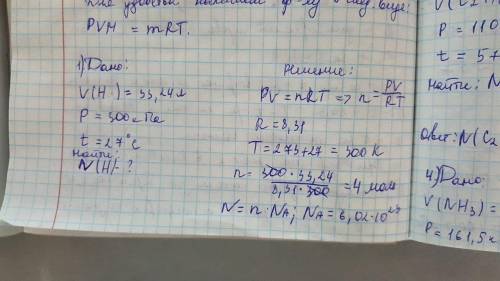 PVM = mRT.
1) Дано:
V(H ) = 33,24л
P = 300кПа
t = 27°C
найти:
N(H)-?
Решение:
PV = nRT => n = PV/RT
R = 8,31
T = 273+27 = 300 K
n = 300 · 33,24 / 8,31 · 300 = 4 моль
N = n · NA; NA = 6,02 · 10²³
P = 110
t = 5+
найти: N
Ответ: N(C2
4) Дано:
V(NH3) =
P = 161,5к